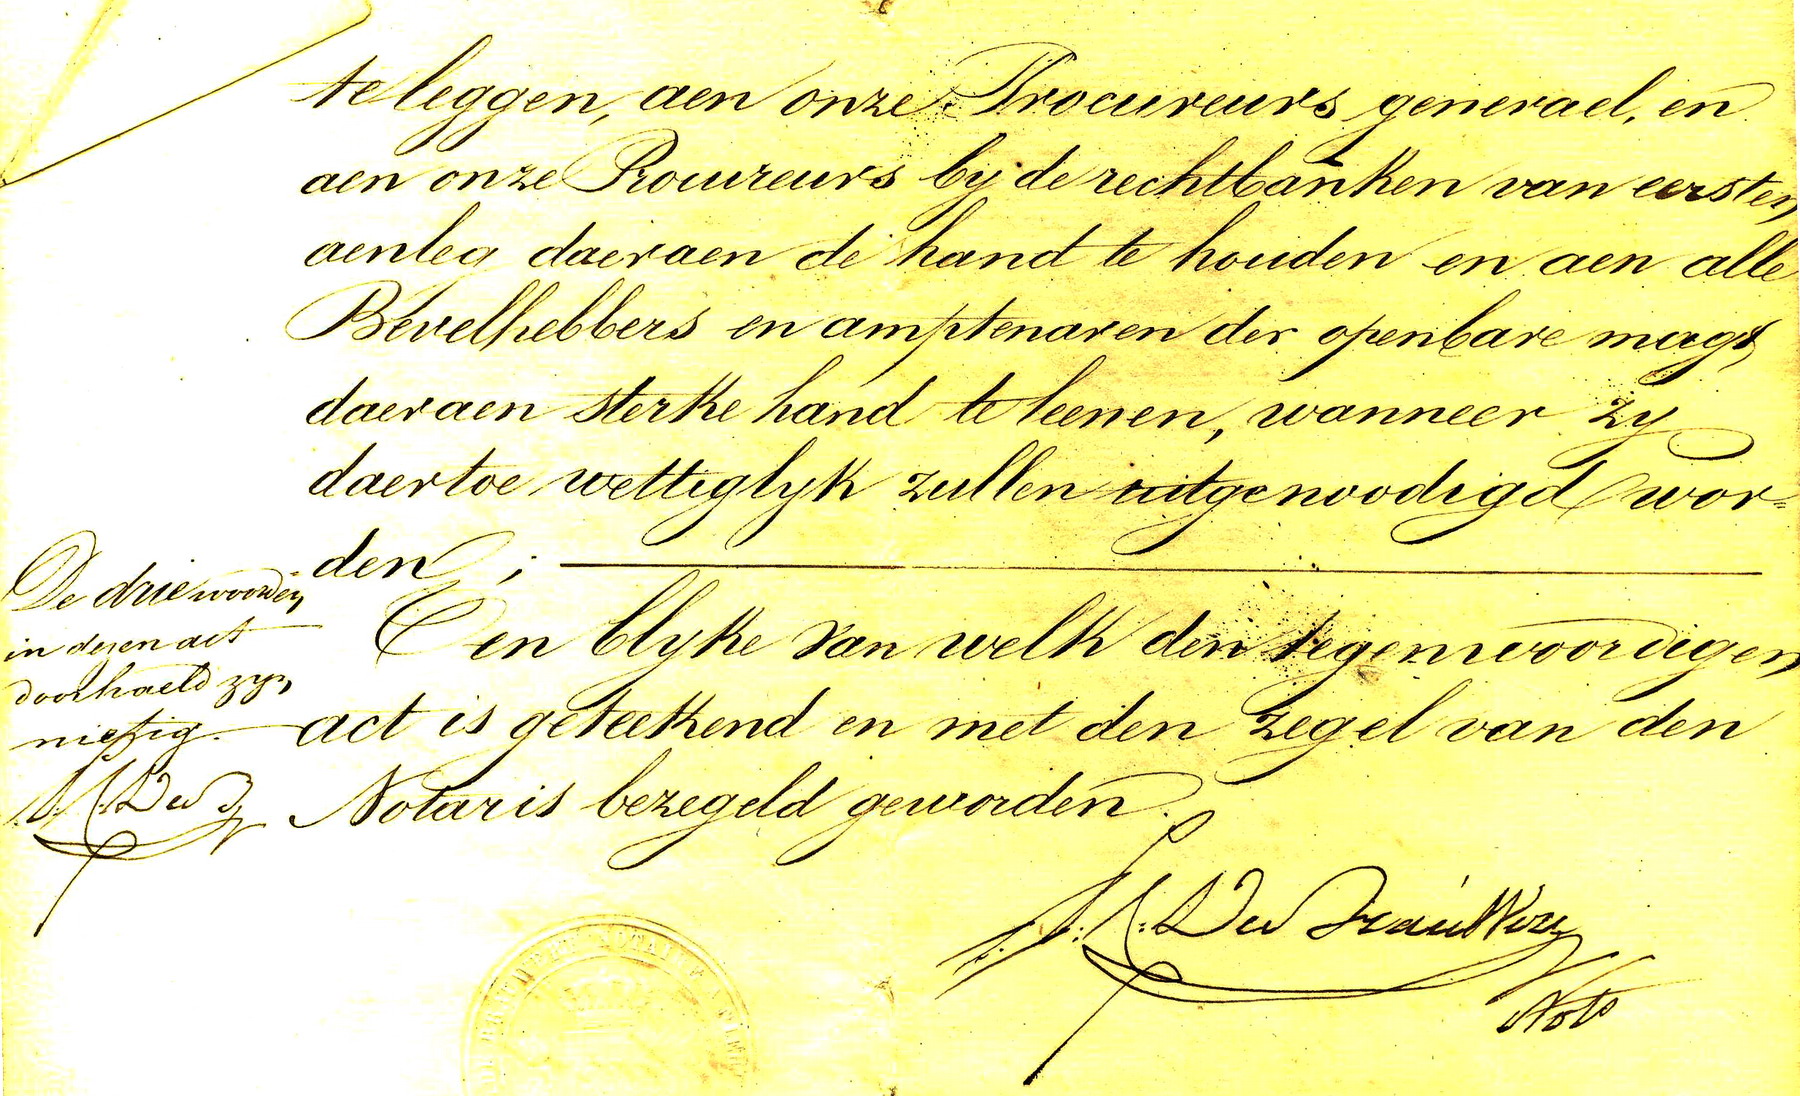 te leggen, aen onze Procureurs generael, en
aen onze Procureurs by de rechtbanken van eersten
aenleg daeraen de hand te houden en aen alle
Bevelhebbers en amptenaren der openbare magt,
daeraen sterke hand te leenen, wanneer zy
daertoe wettiglyk zullen uitgenoodigd wor=
den ;
Ten blyke van welk den tegenwoordigen
act is geteekend en met den zegel van den
Notaris bezegeld geworden.
De drie woorden
in dezen act
doorhaeld zyn
nietig.
Nots
NOTARIS